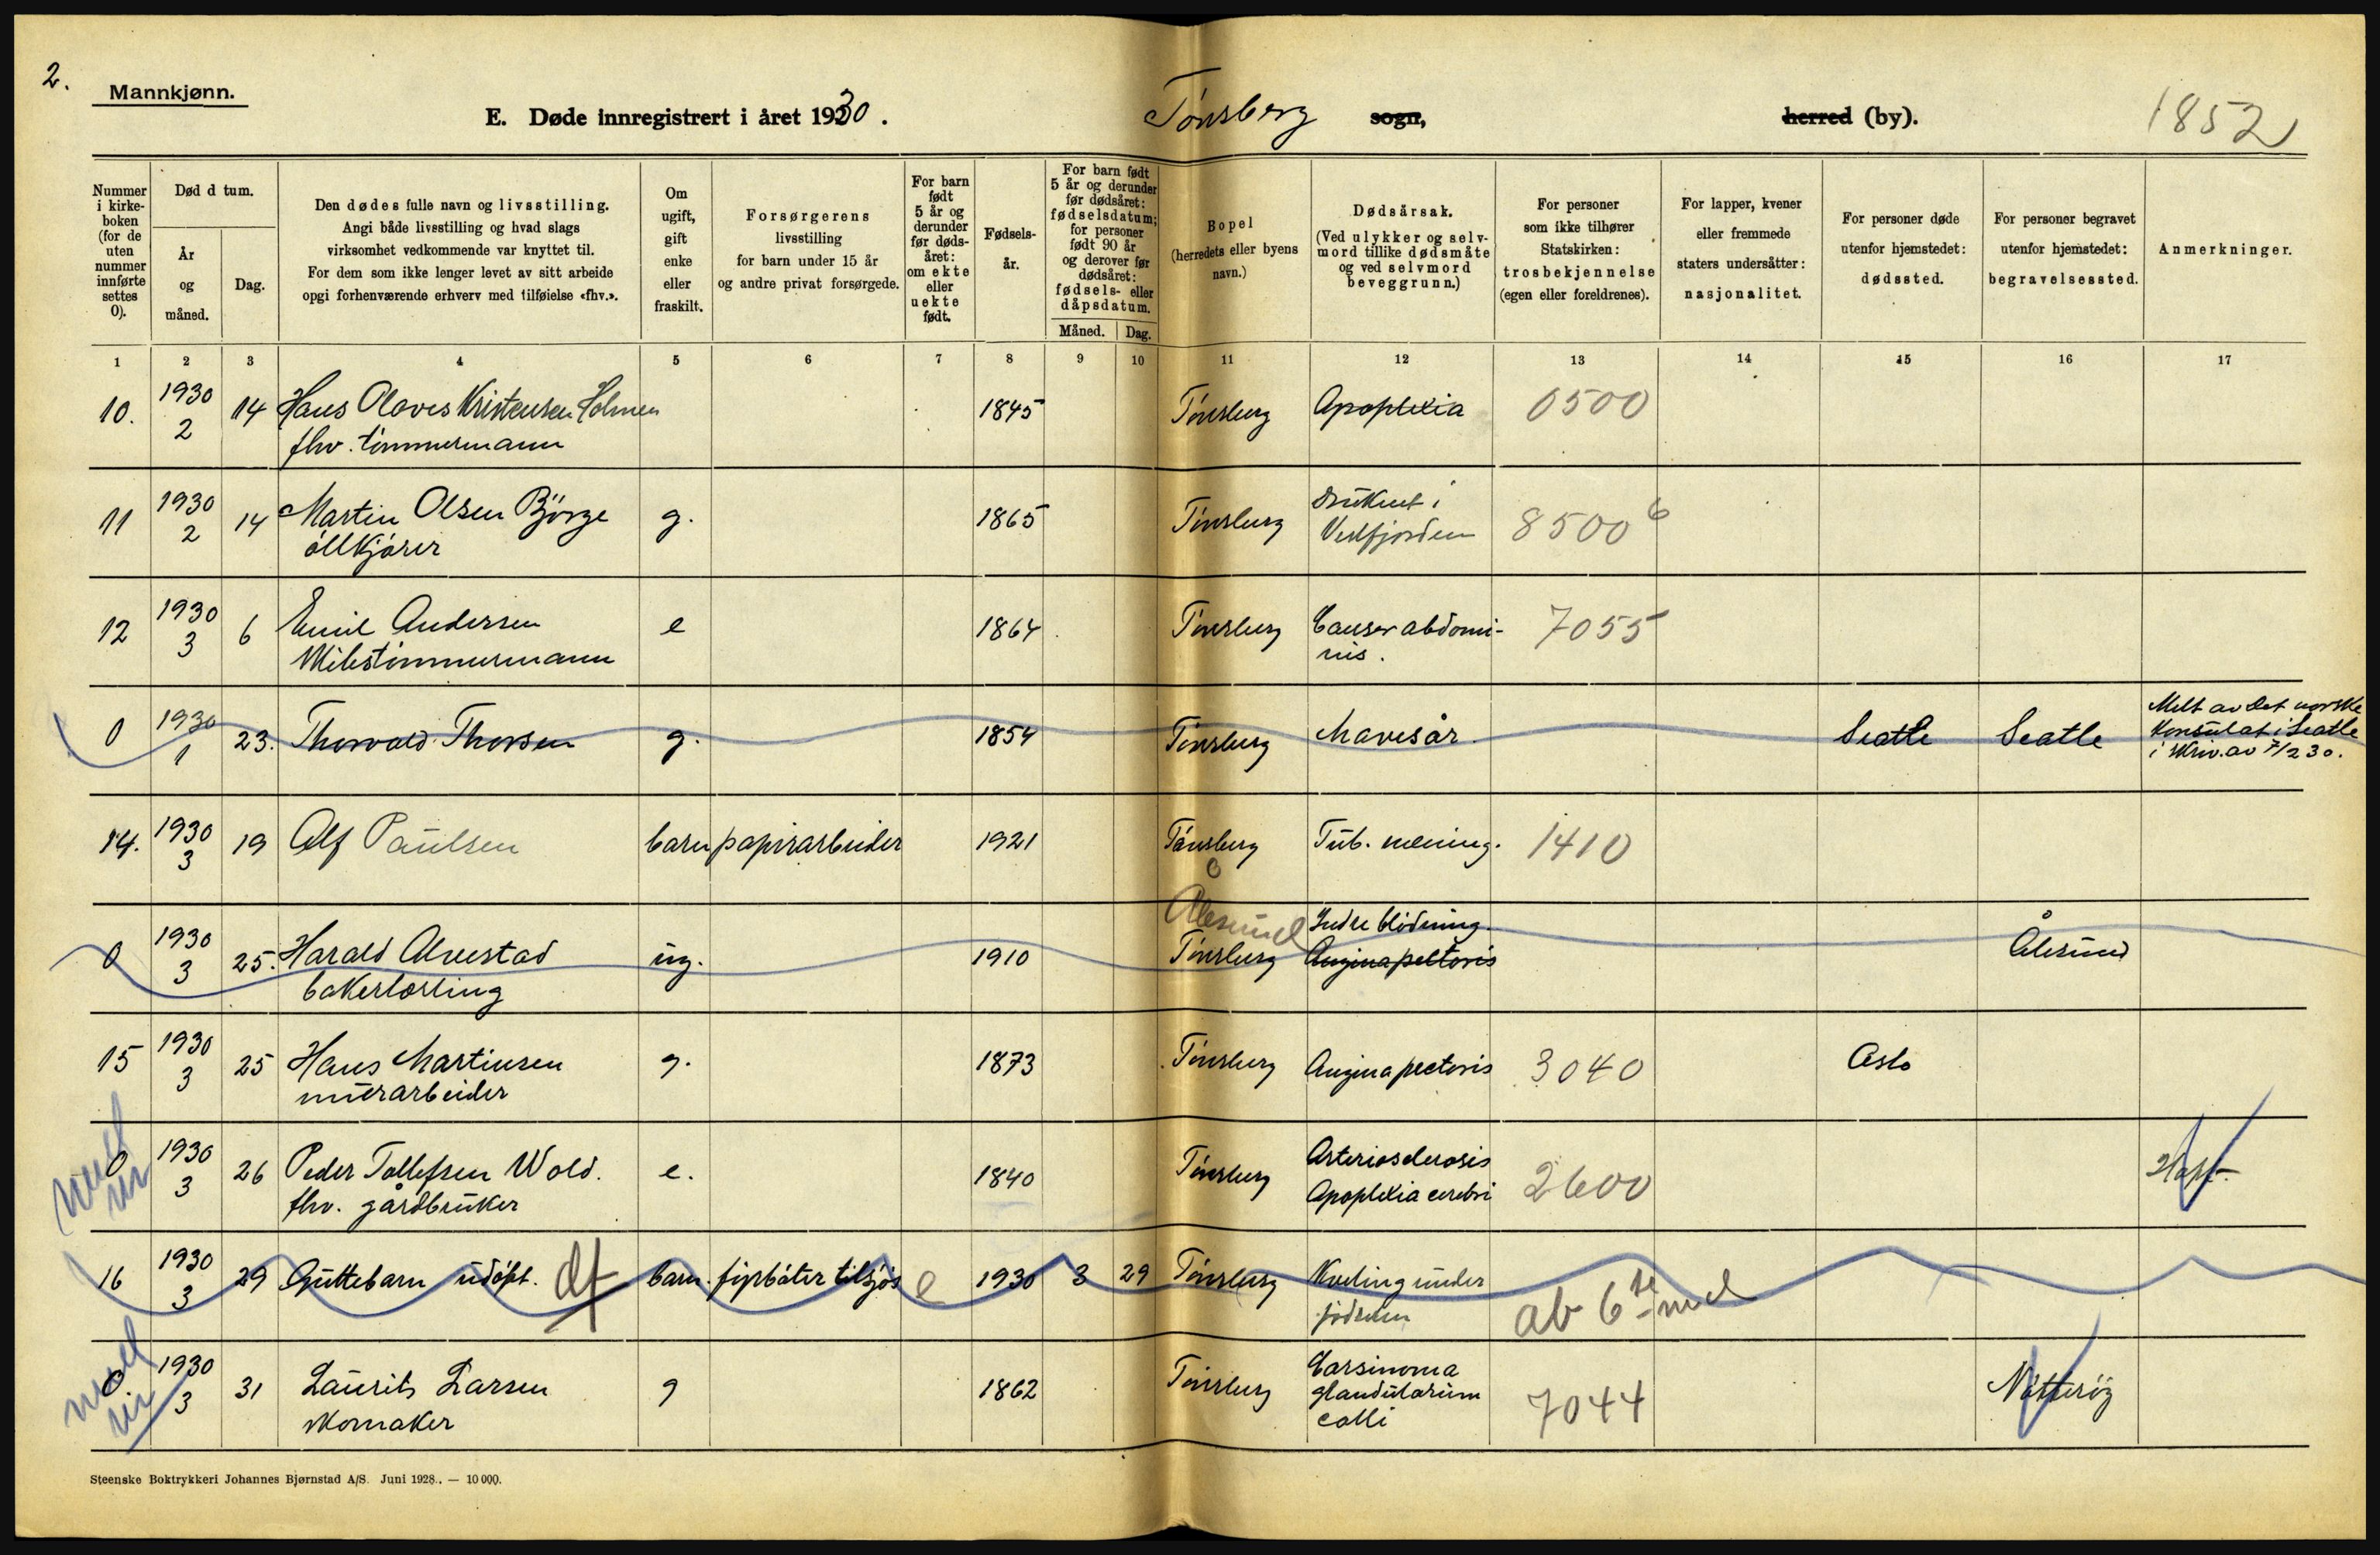 2.
Mannkjønn.
E. Døde innregistrert i året 1930.
Tønsberg sogn, herred (by).
1852
Nummer i kirke-boken (for de uten nummer innførte settes 0).
Død d tum.
År og måned.
Dag.
Den dødes fulle navn og livsstilling.
Angi både livsstilling og hvad slags
virksomhet vedkommende var knyttet til.
For dem som ikke lenger levet av sitt arbeide
opgi forhenværende erhverv med tilføielse «fhv.».
Om ugift, gift enke eller fraskilt.
Forsørgerens livsstilling for barn under 15 år og andre privat forsørgede.
For barn født 5 år og derunder før døds-året: om ekte eller uekte født.
Fødsels-år.
For barn født 5 år og derunder før dødsåret: fødselsdatum; for personer født 90 år og derover før dødsåret: fødsels- eller dåpsdatum.
Måned. Dag.
Bopel (herredets eller byens navn.)
Dødsårsak. (Ved ulykker og selv-mord tillike dødsmåte og ved selvmord beveggrunn.)
For personer som ikke tilhører Statskirken: trosbekjennelse (egen eller foreldrenes).
For lapper, kvener eller fremmede staters undersåtter: nasjonalitet.
For personer døde utenfor hjemstedet: dødssted.
For personer begravet utenfor hjemstedet: begravelsessted.
Anmerkninger.
1 2 3 4 5 6 7 8 9 10 11 12 13 14 15 16 17
10. 1930 2 14 Hans Olaves Kristensen Holmen 1845 Tønsberg Apoplexia 0500
fhv. tømmermann
11 1930 2 14 Martin Olsen Bjørge g. 1865 Tønsberg Druknet i 8500 6
ølkjører Vestfjorden
12 1930 3 6 Emil Andersen e 1864 Tønsberg Canser abdomi- 7055
Skibstømmermann nis.
0 1930 1 23. Thorvald Thorsen g. 1854 Tønsberg Mavesår Seattle Seatle Melt av det norske
Konsulat i Seatle
i skriv. av 7/2 30.
14. 1930 3 19 Alf Paulsen barn papirarbeider 1921 Tønsberg Tub. mening. 1410
Ålesund Indre blødning.
0 1930 3 25. Harald Alvestad ug. 1910 Tønsberg Angina pectoris Ålesund
bakerlærling
15 1930 3 25 Hans Martinsen g. 1873 Tønsberg Angina pectoris 3040 Oslo
murarbeider
0 1930 3 26 Peder Tollefsen Wold. e. 1840 Tønsberg Arteriosclerosis 2600
fhv. gårdbruker Apoplexia cerebri
16 1930 3 29 Guttebarn udøpt. df barn. fyrbøter tilsjøs e 1930 3 29 Tønsberg Kveling under
fødselen ab 6te
0. 1930 3 31 Laurits Larsen g 1862 Tønsberg Carsinoma 7044 Nøtterøy
skomaker glandularum
colli
Steenske Boktrykkeri Johannes Bjørnstad A/S. Juni 1928. — 10 000.